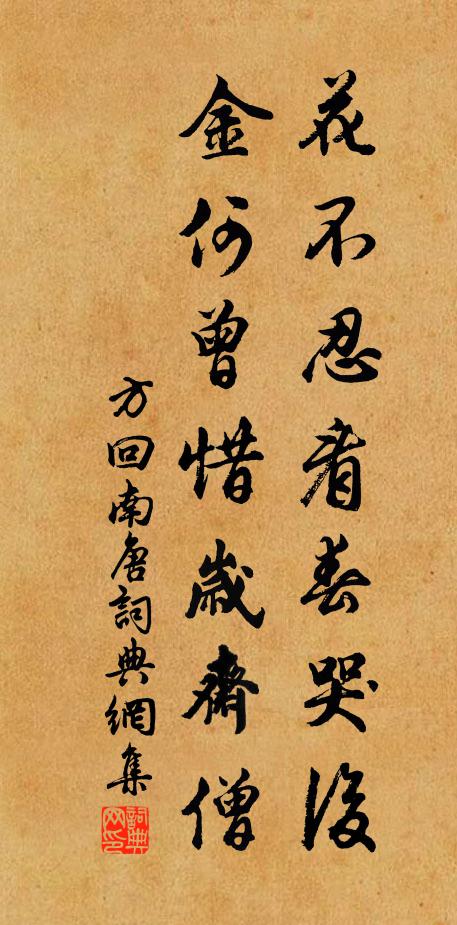 花不忍看春哭後
金何曾惜歲齋僧
方回南唐詞典網集
詞典網印